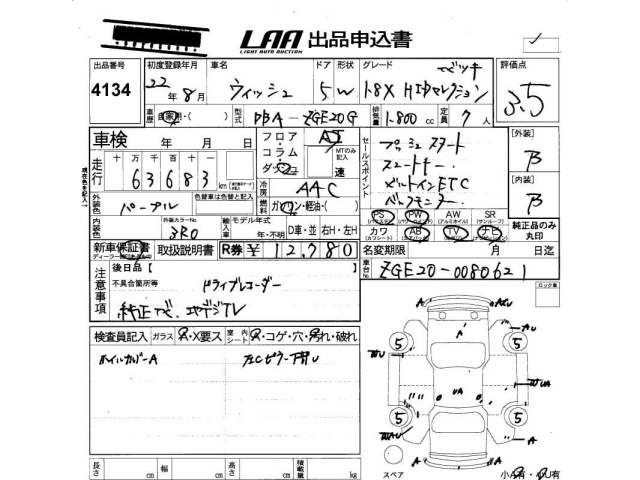 LAA 出品申込書
LIGHT AUTO AUCTION
出品番号 初度登録年月 車名 ドア 形状 グレード 評価点
4134 22年 8月 ウィッシュ 5 W 1.8X HIDセレクション 3.5
車歴 自家用・( ) 型式 DBA-ZGE20G 排気量 1.800 cc 定員 7人
車検 年 月 日
フロア・コラム・ダッシュ AT MTのみ記入 速
セールスポイント
プッシュスタート
スマートキー.
ビルトインETC
バックモニター
[外装] B
[内装] B
走行 十万千百十 63683 km
冷房 AAC
燃料 ガソリン・軽油・( )
外装色 パープル 色替車は色替と記入
内装色 外装カラーNo. 3R0 輸入車 モデル年式 年・不明 D車・並 右H・左H
PS PW AW SR
カワ AB TV ナビ
純正品のみ丸印
新車保証書 取扱説明書 R券 ¥12,780
名変期限 月 日迄
車台No ZGE20-0080621
注意事項
後日品【 】
不具合箇所等 ドライブレコーダー
純正ナビ、地デジTV
ロック車
検査員記入 ガラス A・X要ス 室内シート A・コゲ・穴・汚れ・破れ
ホイルカバーA
長さ cm 幅 cm 高さ cm 積載量 kg
スペア
小A有・小U有